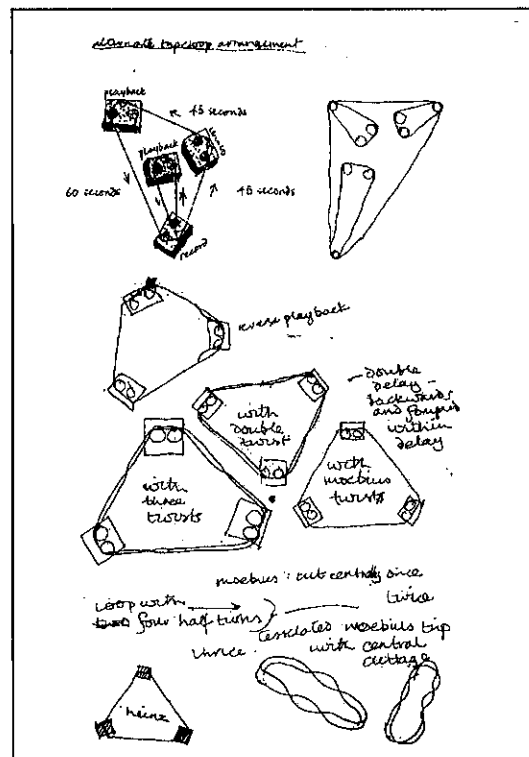 alternate tape loop arrangement
playback
45 seconds
playback
60 seconds
45 seconds
record
reverse playback
with
double
twist
double
delay -
backwards
and
within
delay
with
three
twists
with
moebius
twists
moebius : cut centrally once
twice
thrice
loop with
four half turns
moebius
with central
cuttage
heinz